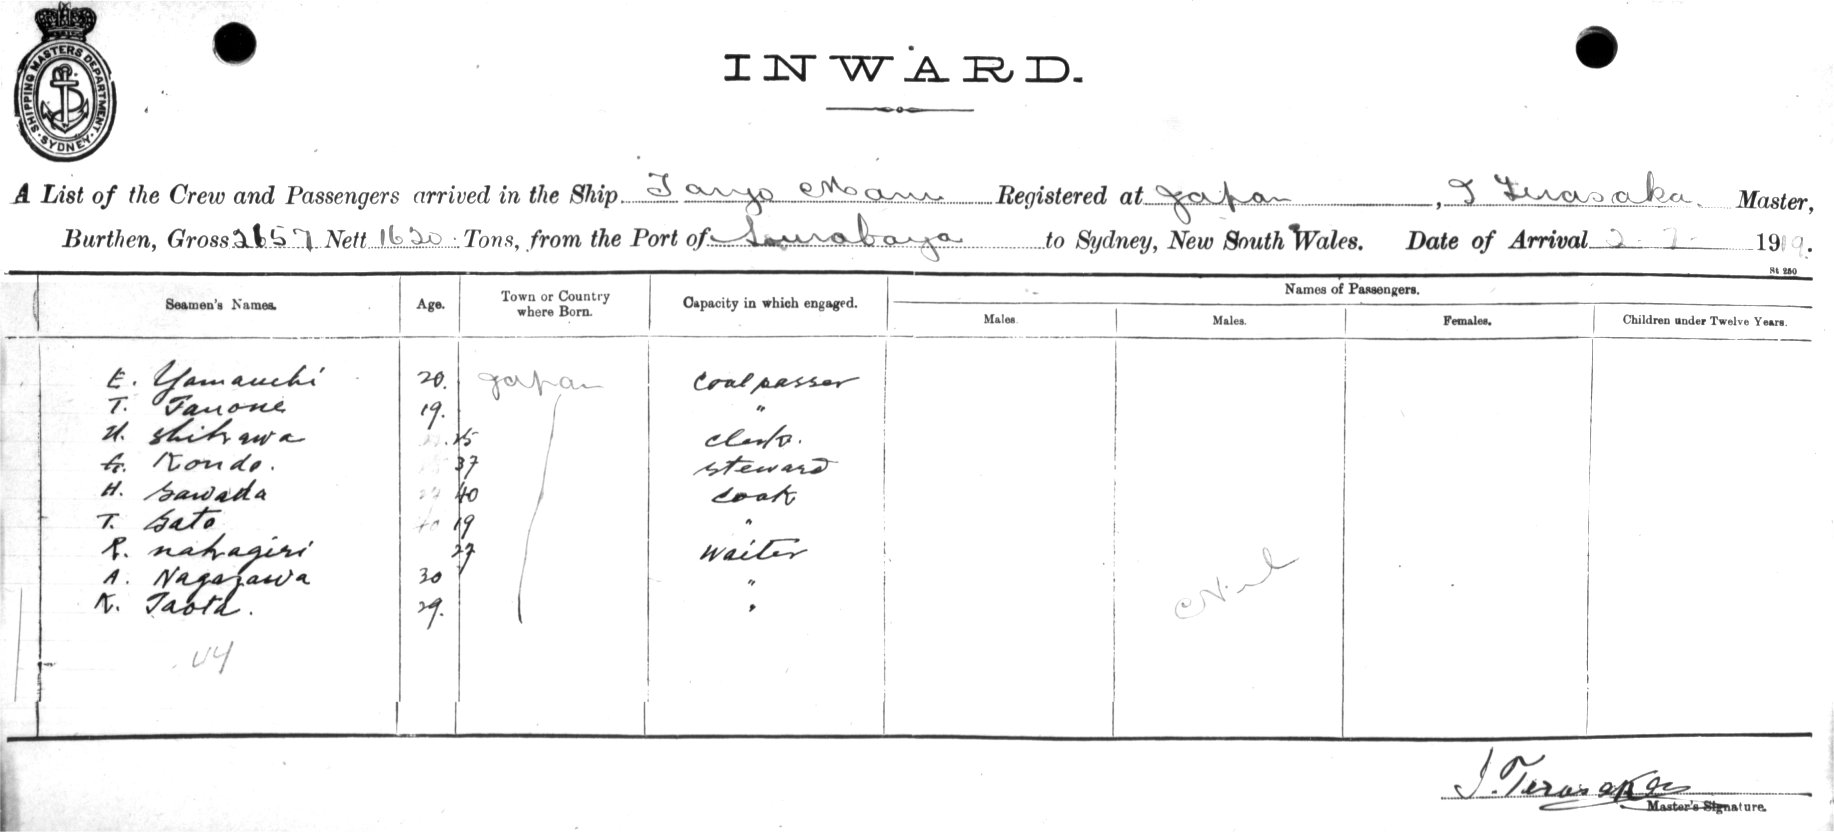 SHIPPING MASTERS DEPARTMENT. SYDNEY
INWARD.
A List of the Crew and Passengers arrived in the Ship Taiyo Maru Registered at Japan, I Terasaka. Master,
Burthen, Gross 2657 Nett 1620 Tons, from the Port of Sourabaya to Sydney, New South Wales. Date of Arrival 2-7- 1919.
St 250
Seamen's Names. Age. Town or Country where Born. Capacity in which engaged. Names of Passengers.
Males. Males. Females. Children under Twelve Years.
E. Yamauchi 20. Japan Coal passer
T. Tanone 19. "
U. Shikawa 25 Clerk.
G. Kondo. 37 Steward
H. Sawada 40 Cook
T. Sato 19 "
R. Nakagiri 27 Waiter
A. Nagazawa 30 "
K. Taota. 29. "
Nil
44
I. Terasaka
Master's Signature.